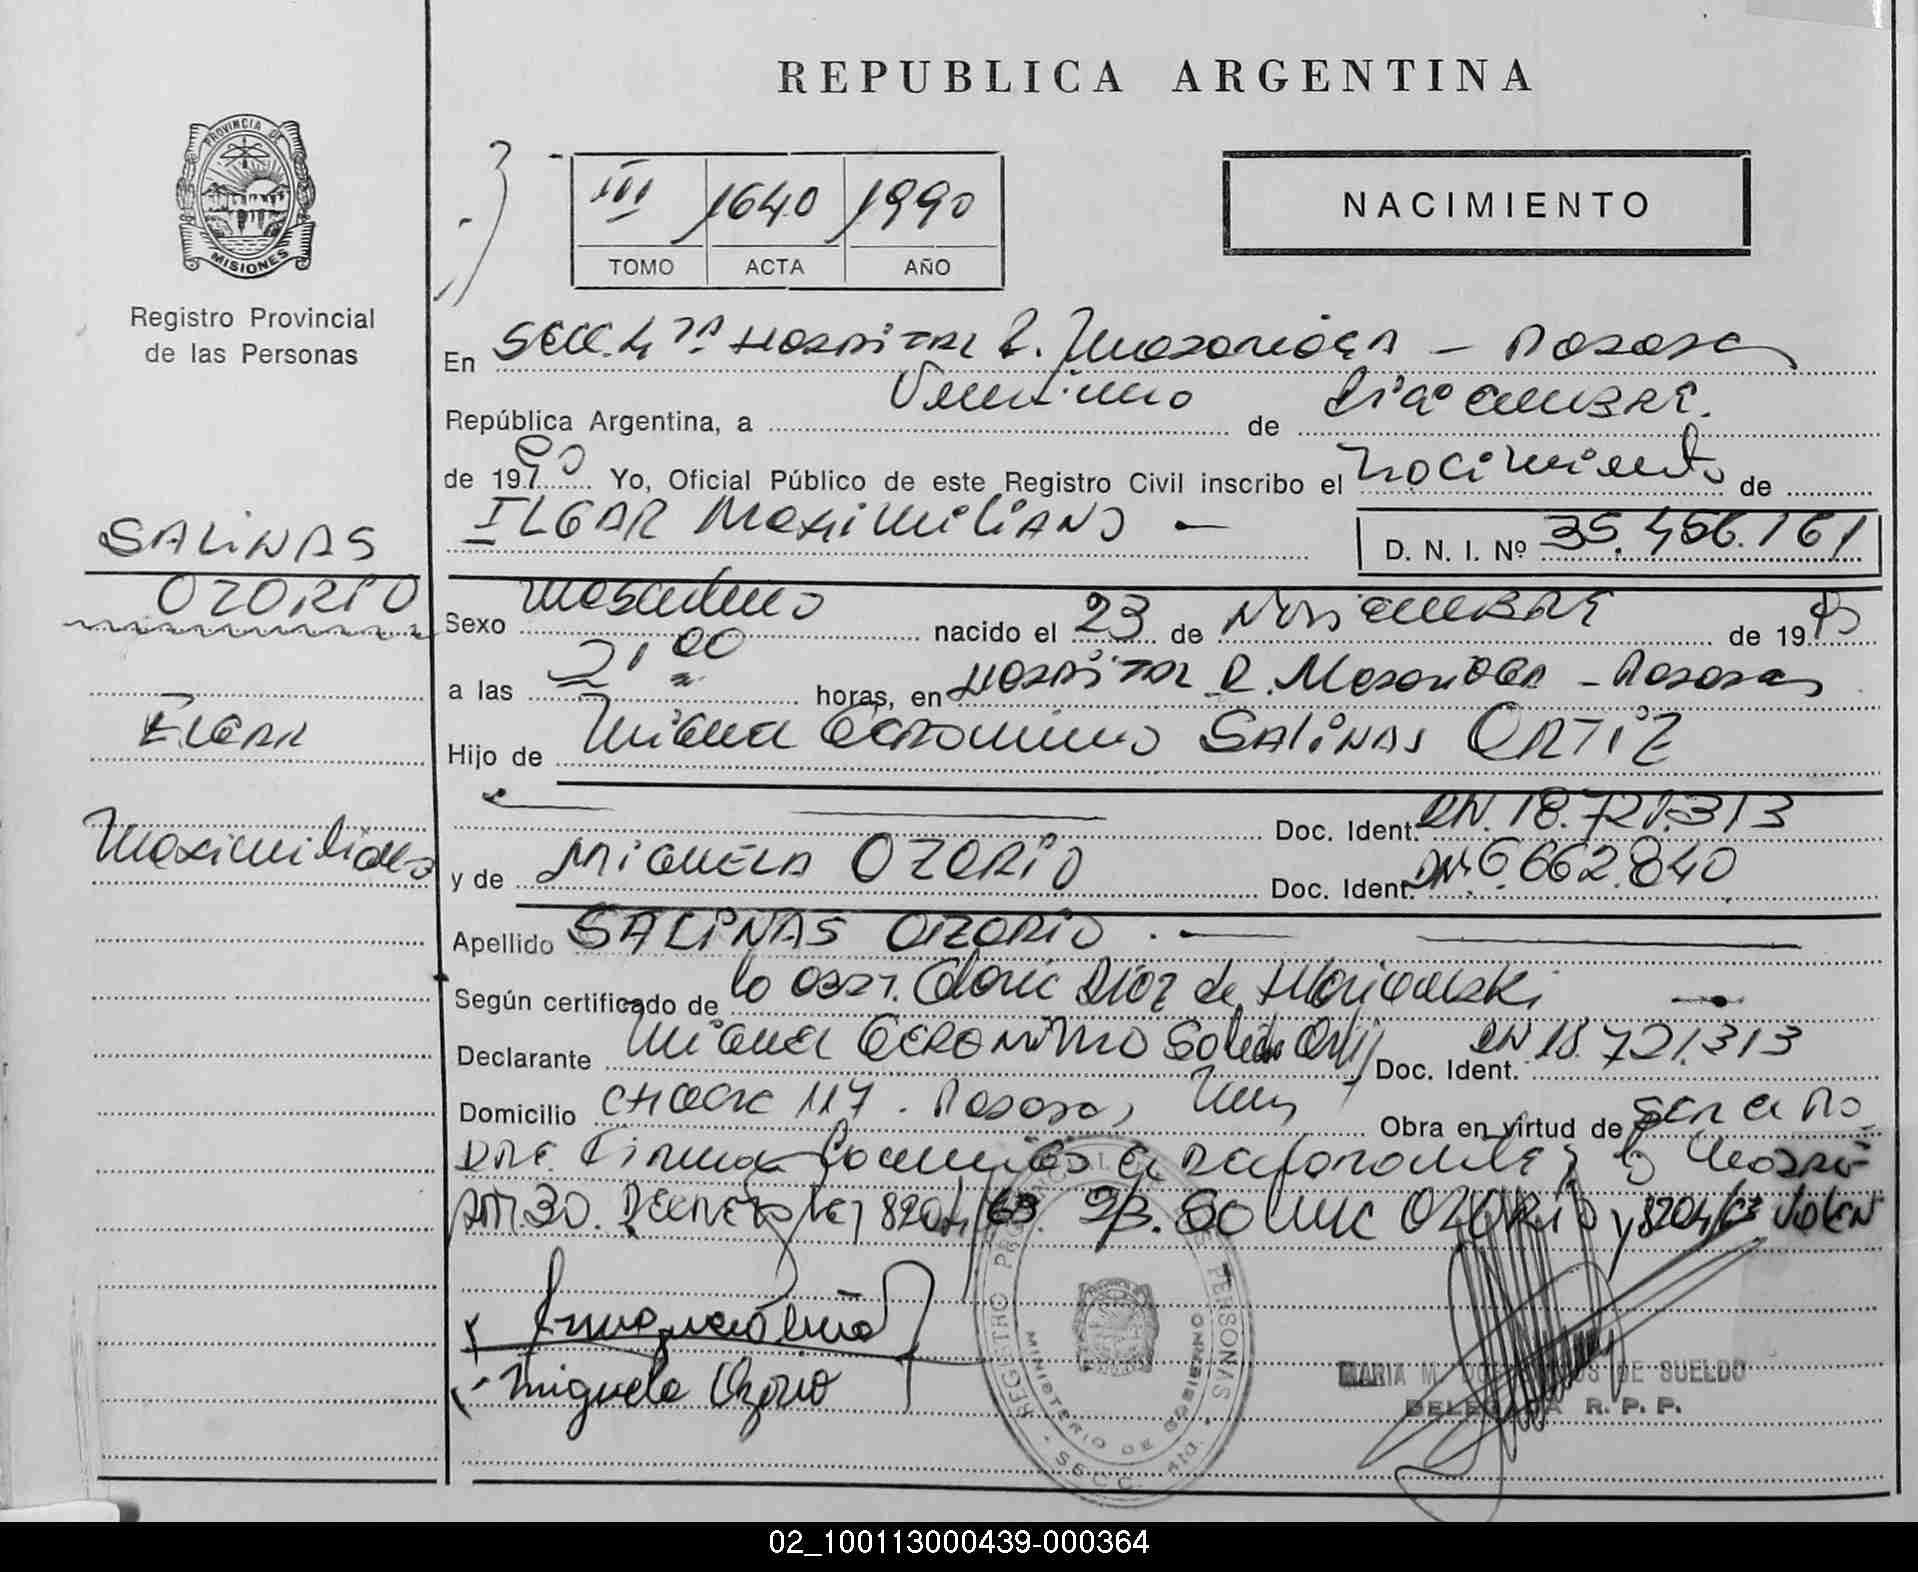 REPUBLICA ARGENTINA
PROVINCIA DE
MISIONES
Registro Provincial
de las Personas
III 1640 1990
TOMO ACTA AÑO
NACIMIENTO
En Secc. 4ta Hospital R. Madariaga - Posadas
República Argentina, a Veintiuno de Diciembre.
de 1990 Yo, Oficial Público de este Registro Civil inscribo el nacimiento de
ILGAR Maximiliano -
D. N. I. Nº 35.456.161
SALINAS
OZORIO
ILGAR
Maximiliano
Sexo Masculino nacido el 23 de Noviembre de 1990
a las 21,00 horas, en Hospital R. Madariaga - Posadas
Hijo de Miguel Geronimo SALINAS ORTIZ
Doc. Ident. DN. 18.721.313
y de MIGUELA OZORIO Doc. Ident. DN. 6.662.840
Apellido SALINAS OZORIO . -
Según certificado de la obst. Diaz de
Declarante Miguel GERONIMO Salinas Ortiz Doc. Ident. DN 18.721.313
Domicilio CHACRA 117 . Posadas, Mnes Obra en virtud de ser el pa
dre. Firma
ART. 30. Decreto Ley 8204/63. OZORIO y 8204/63 Valen
Miguela Ozorio
REGISTRO PROVINCIAL DE LAS PERSONAS
MINISTERIO DE GOBIERNO
SECC. 4ta.
MARIA M. DE SUELDO
DELEGADA R. P. P.
02_100113000439-000364